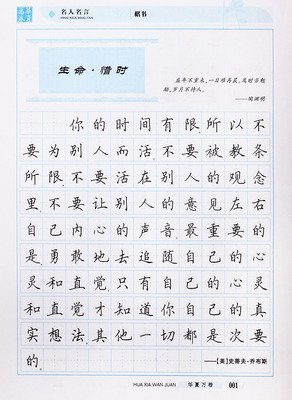 名人名言
MING REN MING YAN
楷书
生命·惜时
盛年不重来，一日难再晨。及时当勉
励，岁月不待人。
——陶渊明
你的时间有限，所以不
要为别人而活。不要被教条
所限，不要活在别人的观念
里。不要让别人的意见左右
自己内心的声音。最重要的
是，勇敢地去追随自己的心
灵和直觉，只有自己的心灵
和直觉才知道你自己的真
实想法，其他一切都是次要
的。
——[美]史蒂夫·乔布斯
HUA XIA WAN JUAN 华夏万卷 001